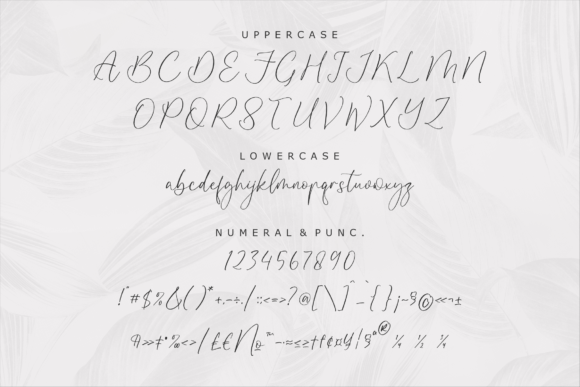 UPPERCASE
ABCDEFGHIJKLMN
OPQRSTUVWXYZ
LOWERCASE
abcdefghijklmnopqrstuvwxyz
NUMERAL & PUNC.
1234567890
!"#$%&()*+,-÷./:;<=>?@[\]^_`{}¡~§©«¬±